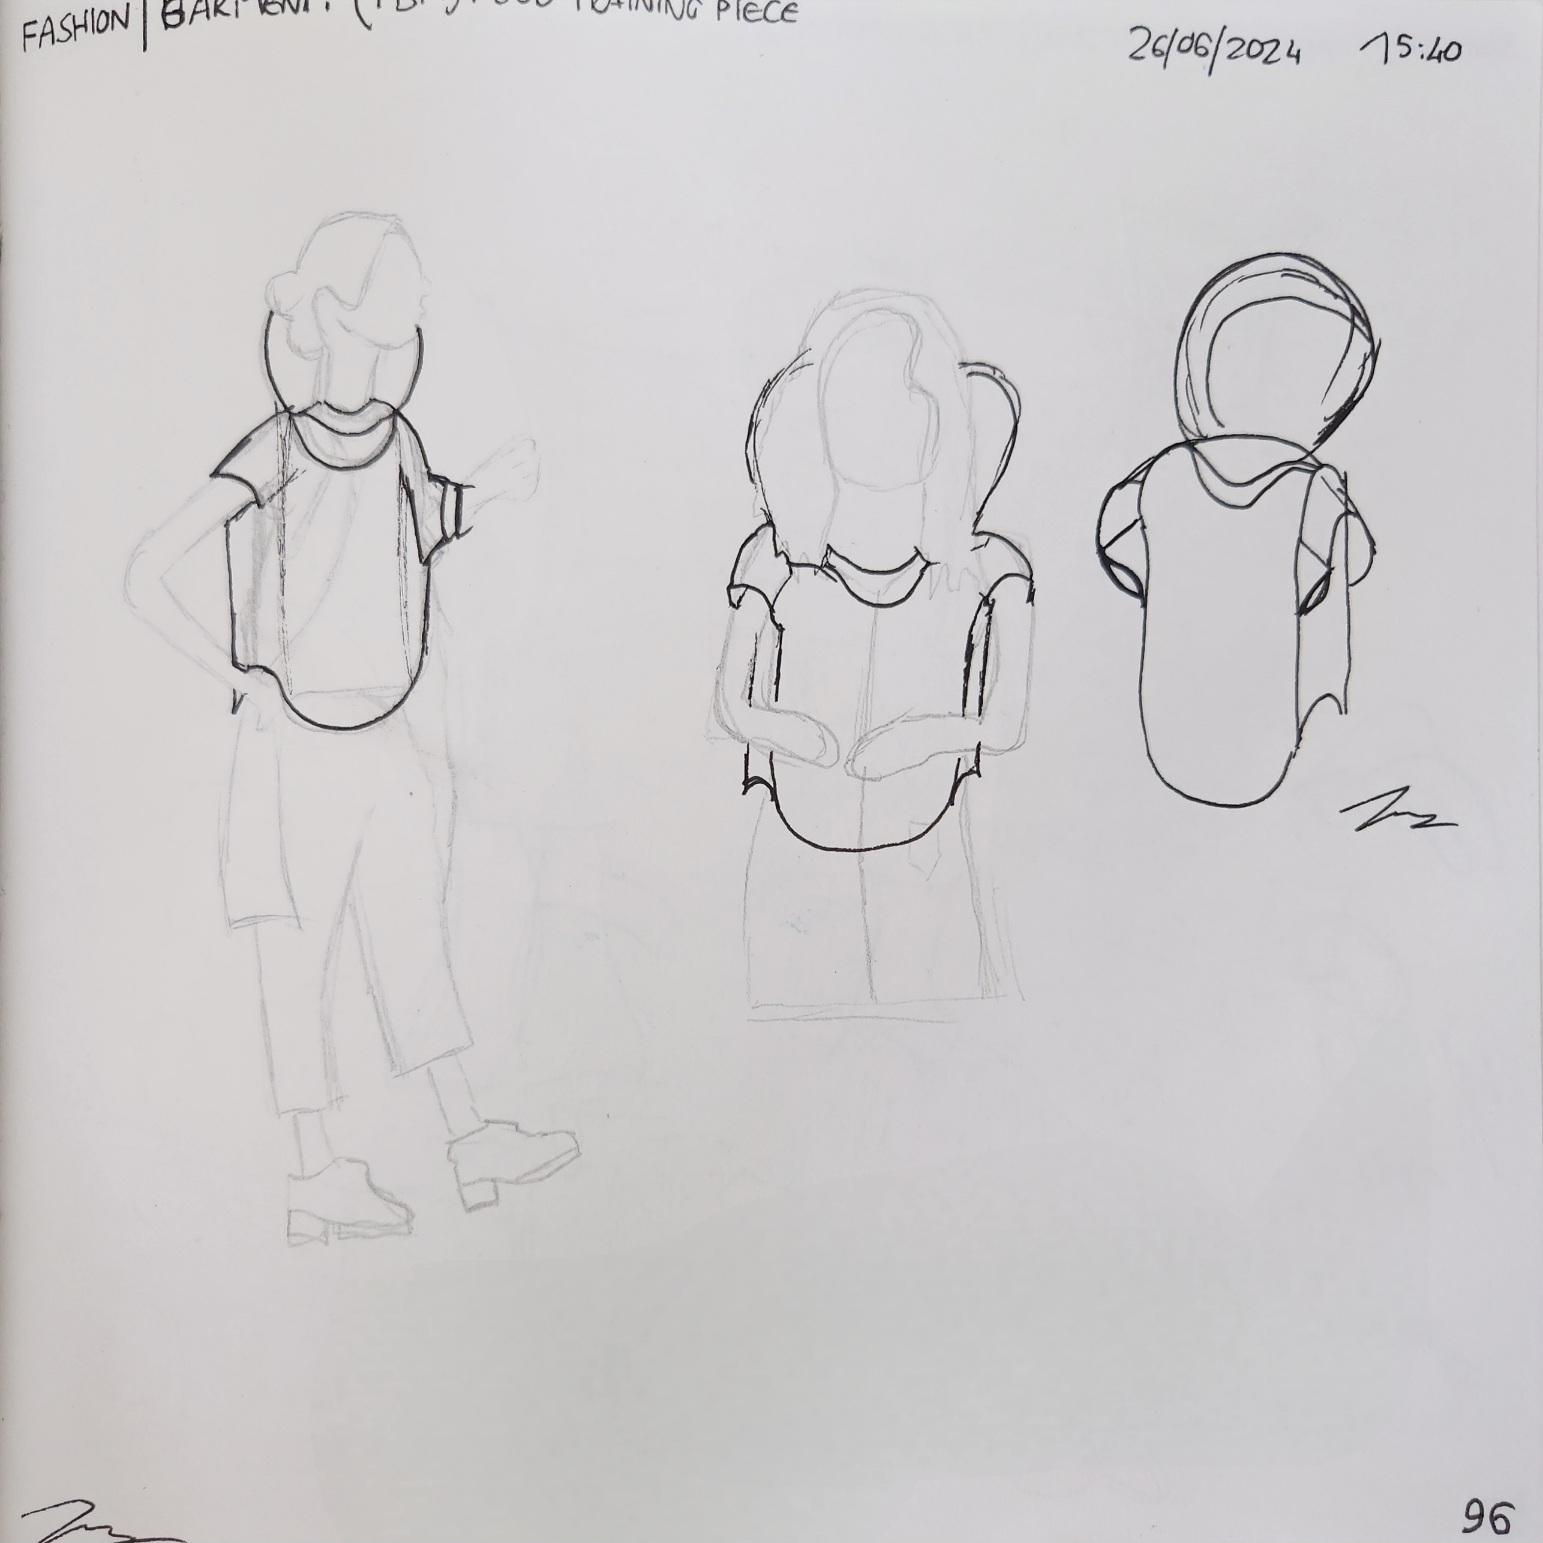 FASHION | GARMENT: TRAINING PIECE
26/06/2024 15:40
96